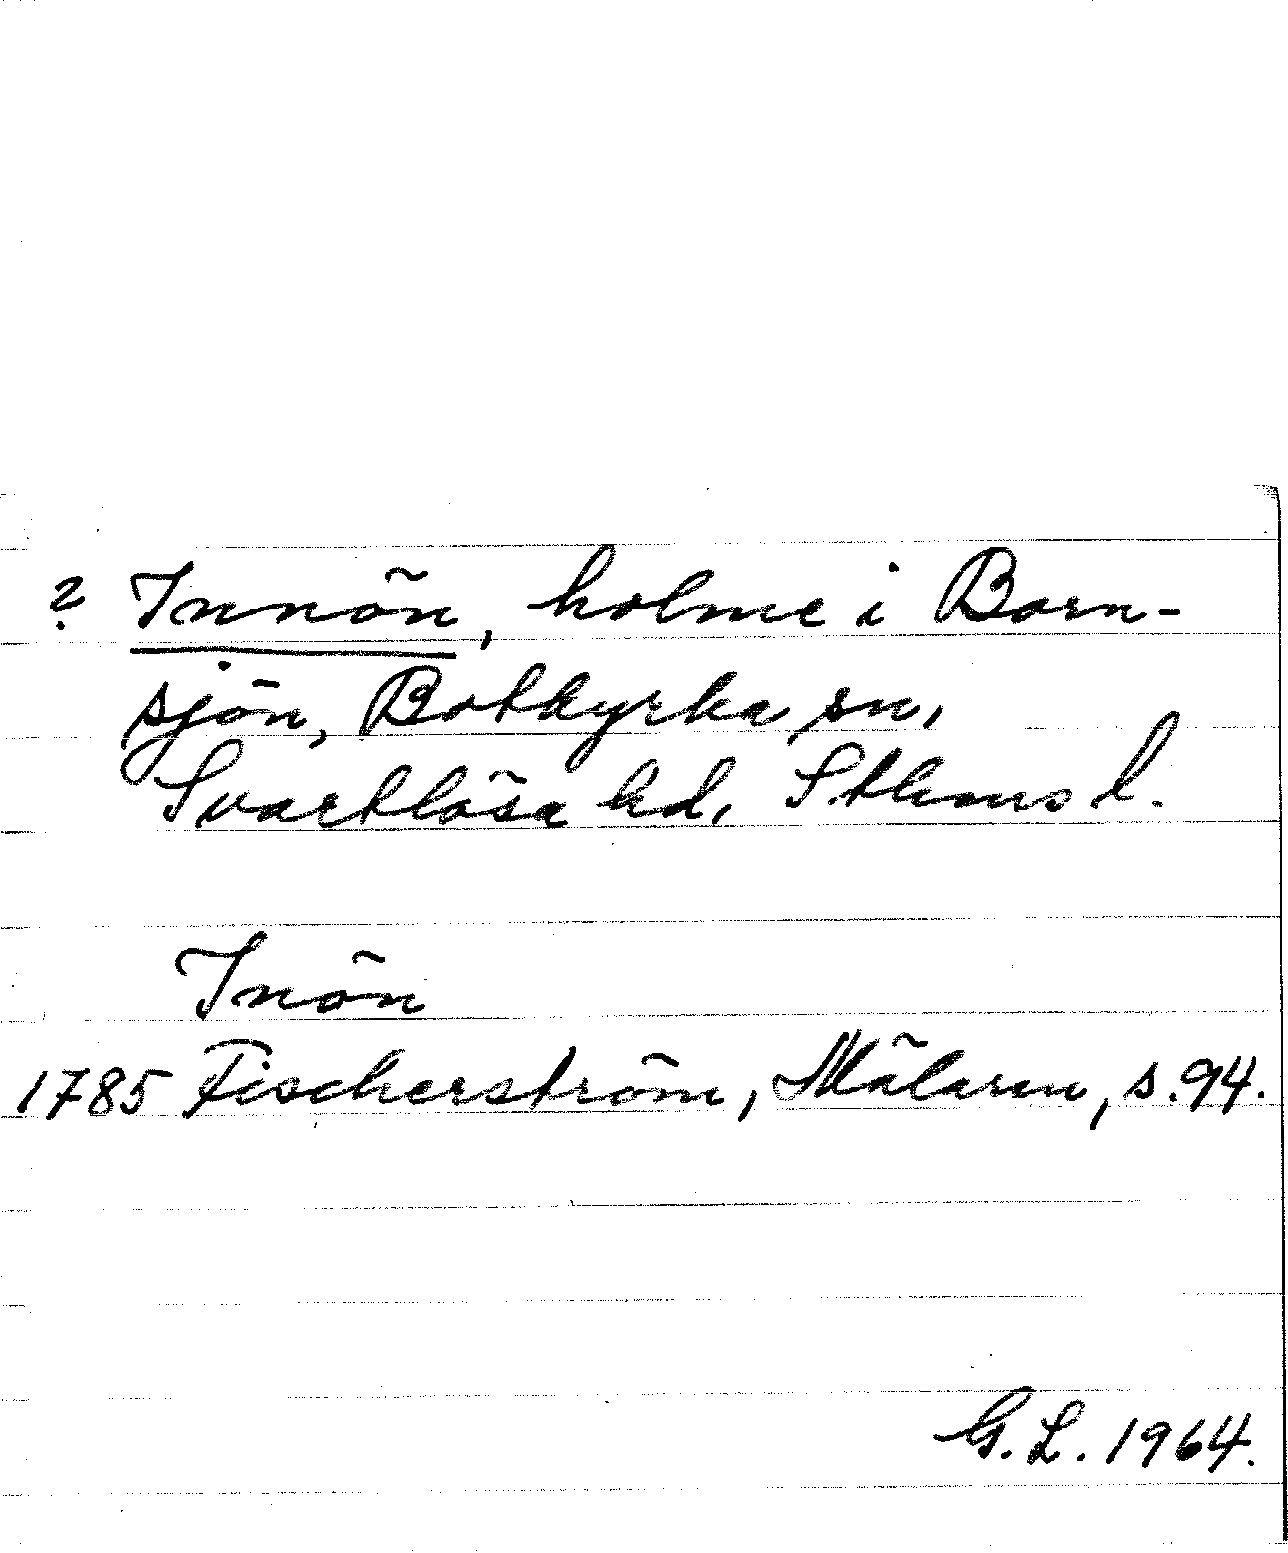 ? Innön, holme i Born-
sjön, Botkyrka sn,
Svartlösa hd, Sthms l.
Inön
1785 Fischerström, Mälaren, s. 94.
G. L. 1964.